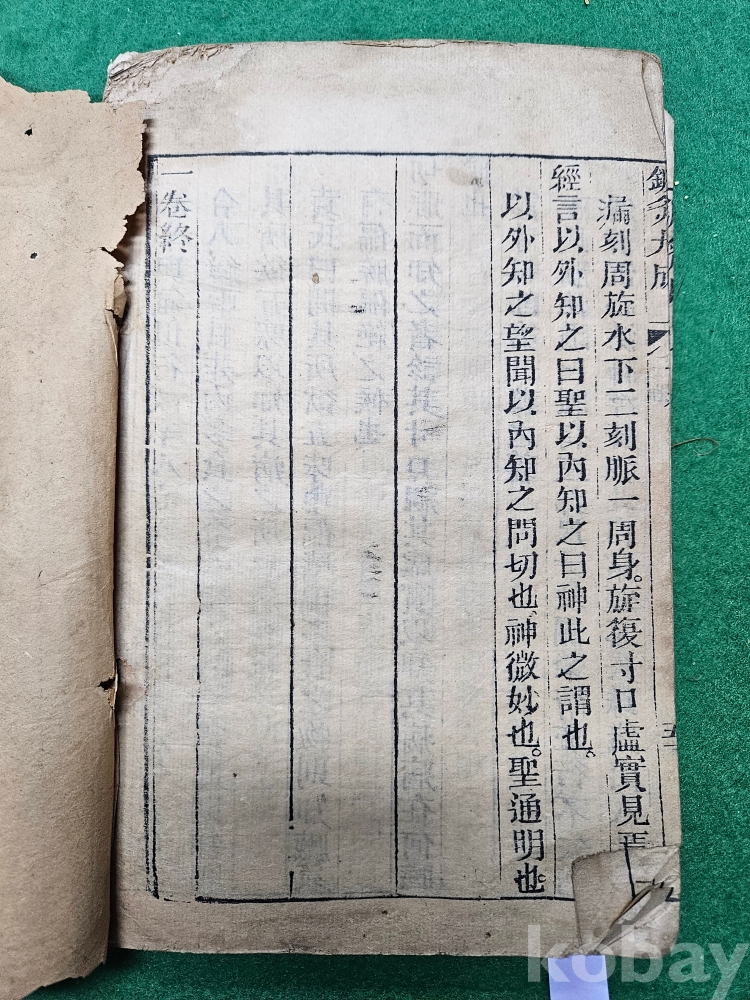 漏刻周旋水下二刻脈一周身。旋復寸口虛實見焉
經言以外知之曰聖以內知之曰神此之謂也。
以外知之望聞以內知之問切也、神微妙也。聖通明也。
一卷終
kobay